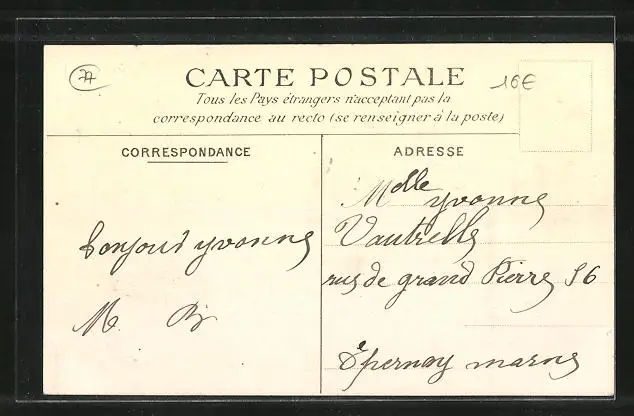 77
CARTE POSTALE
16€
Tous les Pays étrangers n'acceptent pas la
correspondance au recto (se renseigner à la poste)
CORRESPONDANCE
ADRESSE
Melle yvonne
Vautrelle
bonjour yvonne
rue de grand Pierre 56
M. B
Épernay marne